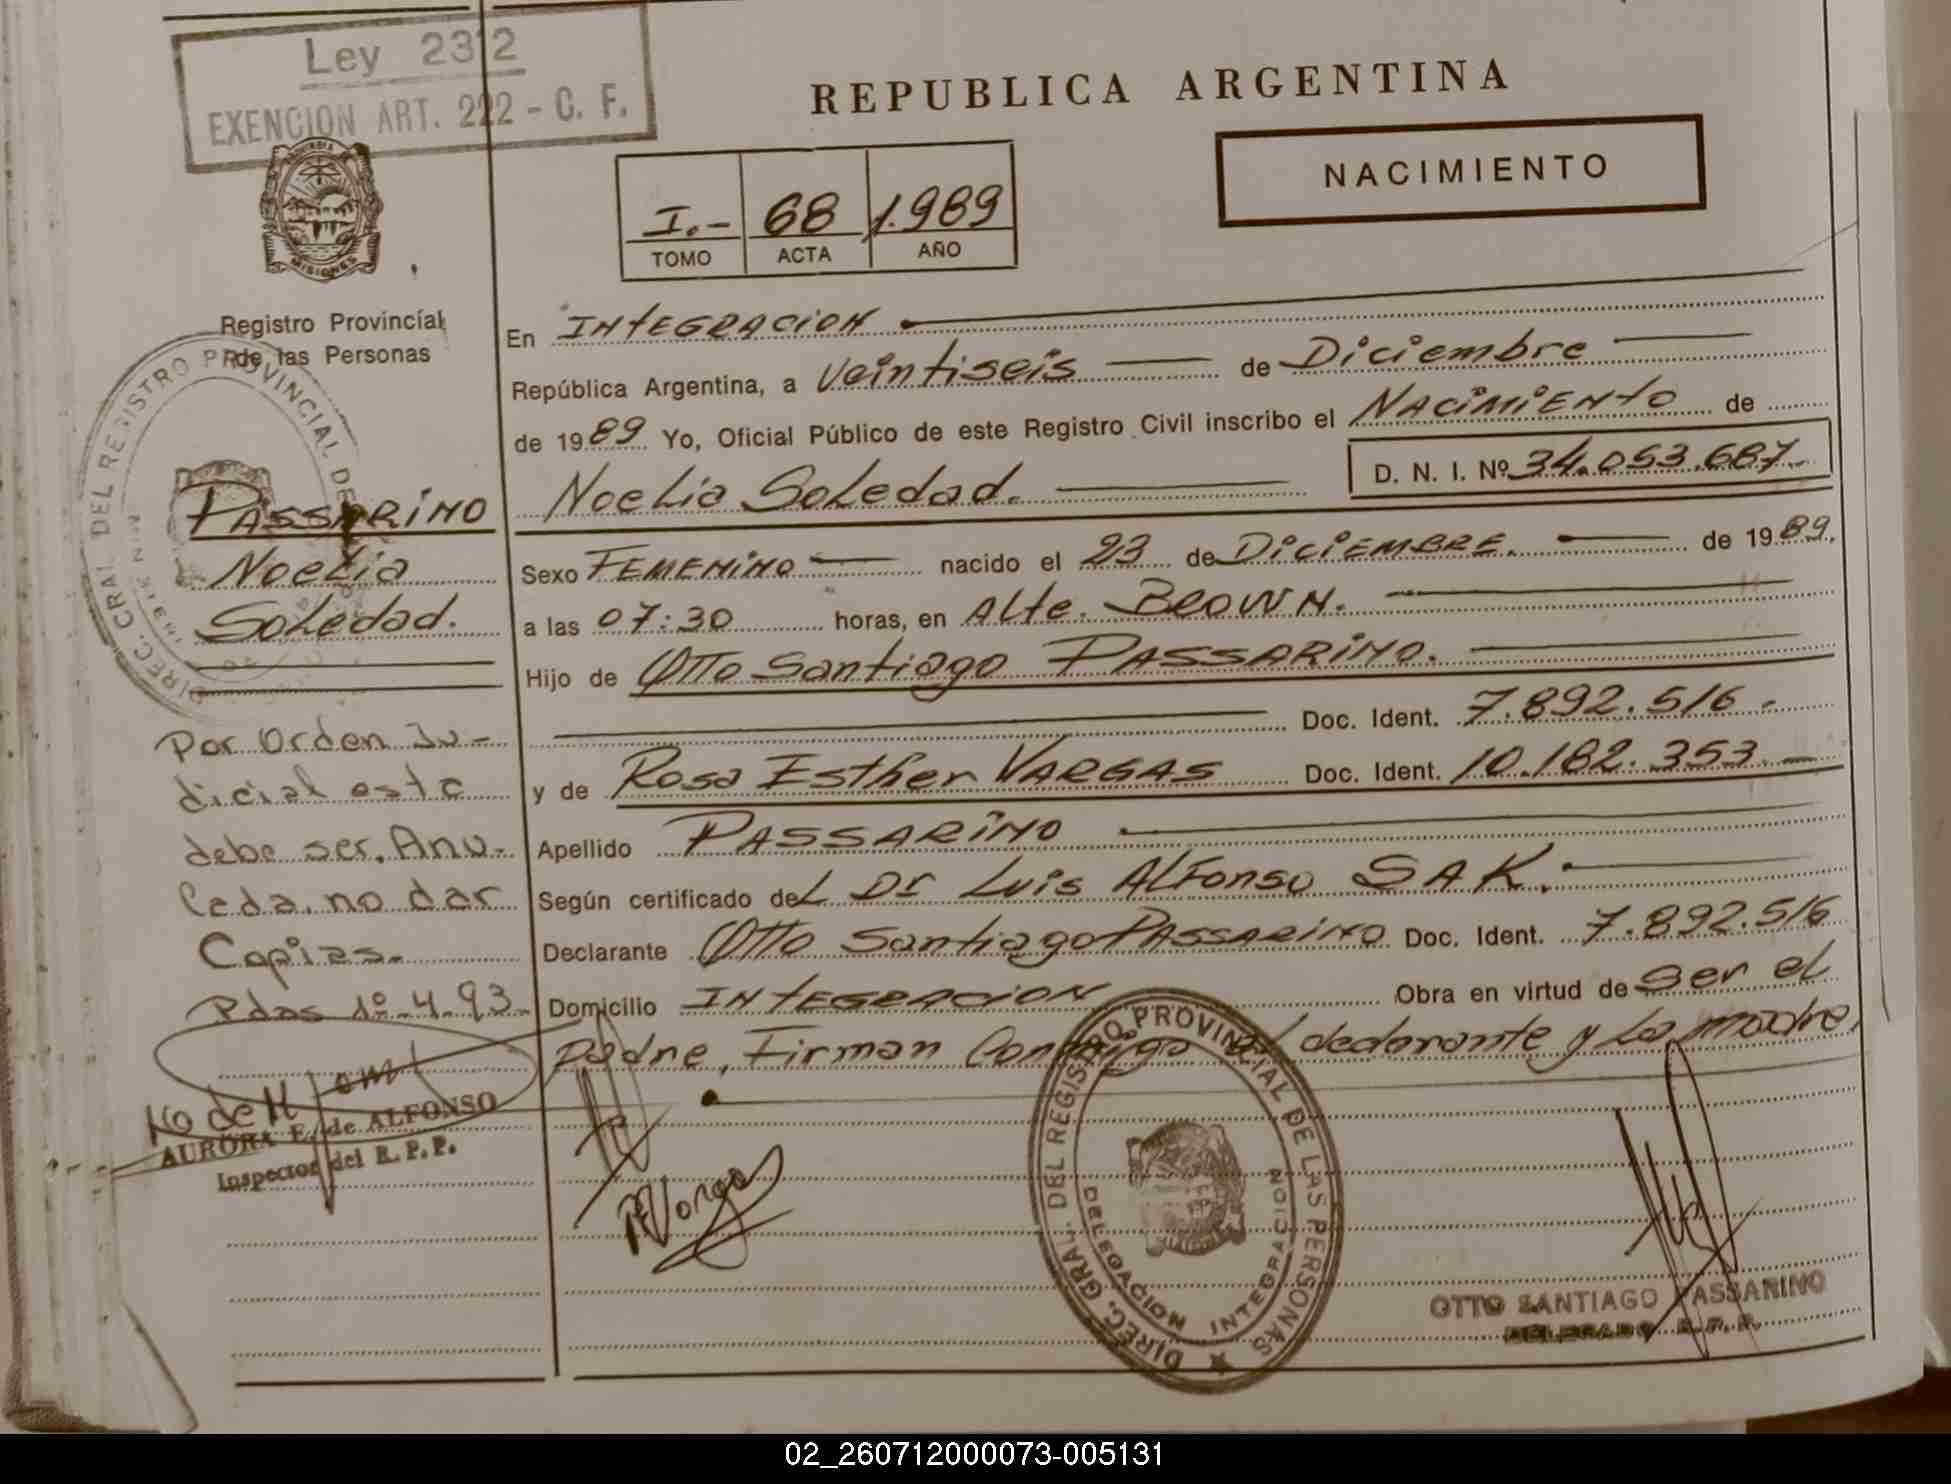 Ley 2312
EXENCION ART. 222 - C. F.
REPUBLICA ARGENTINA
NACIMIENTO
I.- 68 1.989
TOMO ACTA AÑO
MISIONES
Registro Provincial
de las Personas
DIREC. GRAL. DEL REGISTRO PROVINCIAL DE
PASSARINO
Noelia
Soledad.
Por Orden Ju-
dicial esta
debe ser. Anu-
lada. no dar
Copias.-
Pdas 1º-4-93-
AURORA F. de ALFONSO
Inspector del R. P. P.
En INTEGRACION
República Argentina, a veintiseis de Diciembre
de 1989 Yo, Oficial Público de este Registro Civil inscribo el NACIMIENTO de
Noelia Soledad. D. N. I. Nº 34.053.687
Sexo FEMENINO nacido el 23 de DICIEMBRE. de 1989.
a las 07:30 horas, en Alte. BROWN.
Hijo de Otto Santiago PASSARINO.
Doc. Ident. 7.892.516-
y de Rosa Esther VARGAS Doc. Ident. 10.182.353.-
Apellido PASSARINO
Según certificado del Dr Luis ALFonso SAK.
Declarante Otto Santiago PASSARINO Doc. Ident. 7.892.516
Domicilio INTEGRACION Obra en virtud de ser el
padre, Firman Conmigo el declarante y la madre,
RVargas
DIREC. GRAL. DEL REGISTRO PROVINCIAL DE LAS PERSONAS
DELEGACION INTEGRACION
OTTO SANTIAGO PASSARINO
DELEGADO R.P.P.
02_260712000073-005131